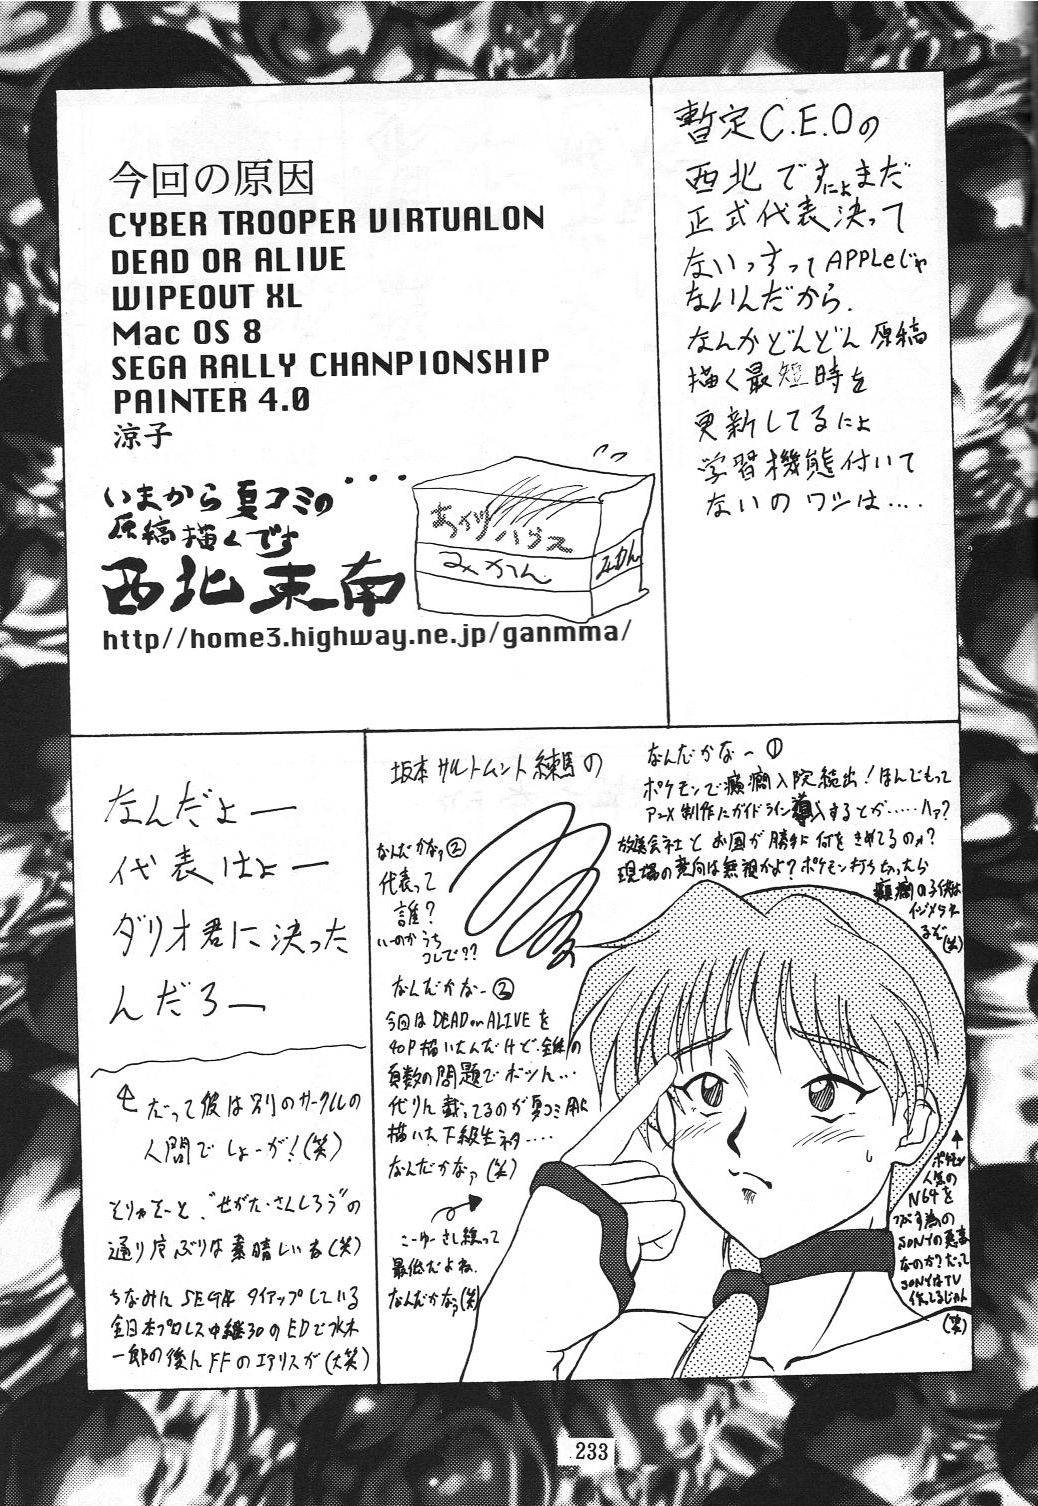 暫定C.E.Oの
西北ですによまだ
正式代表決って
ないっすってAPPLeじゃ
ないんだから.
なんかどんどん原稿
描く最短時を
更新してるによ
学習機態付いて
ないのワシは....
今回の原因
CYBER TROOPER VIRTUALON
DEAD OR ALIVE
WIPEOUT XL
Mac OS 8
SEGA RALLY CHANPIONSHIP
PAINTER 4.0
涼子
いまから夏コミの・・・
原稿描くです
ハウス
みかん
みかん
西北東南
http//home3.highway.ne.jp/ganmma/
坂本サルトムント練馬の
なんだかなー①
ポケモンで癲癇入院続出!ほんでもって
アニメ制作にガイドライン導入するとか......ハァ?
放送会社とお国が勝手に何をきめてるのか?
現場の意向は無視かよ?ポケモン打ち切ったら
癲癇の子供は
イジメラれ
るぞ
(笑)
なんだかなァ②
代表って
誰?
いーのかうち
コレで??
なんだかなー②
今回はDEAD or ALIVEを
40P描いたんだけど・全体の
頁数の問題でボツん...
代りん載ってるのが夏コミ用に
描いた下級生ネタ....
なんだかなァ(笑)
こーゆーさし絵って
最低だよね.
なんだかなァ(笑)
ポケモン
人気の
N64を
つぶす為の
SONYの悪事
なのか?だって
SONYはTV
作ってるじゃん
(笑)
なんだよー
代表はよー
ダリオ君に決った
んだろー
だって彼は別のサークルの
人間でしょーが!(笑)
そりゃそーと、"せがた・さんしろう"の
通り座ぶりは素晴しいね(笑)
ちなみにSEGAがタイアップしている
全日本プロレス中継30のEDで水木
一郎の後んFFのエアリスが(大笑)
233